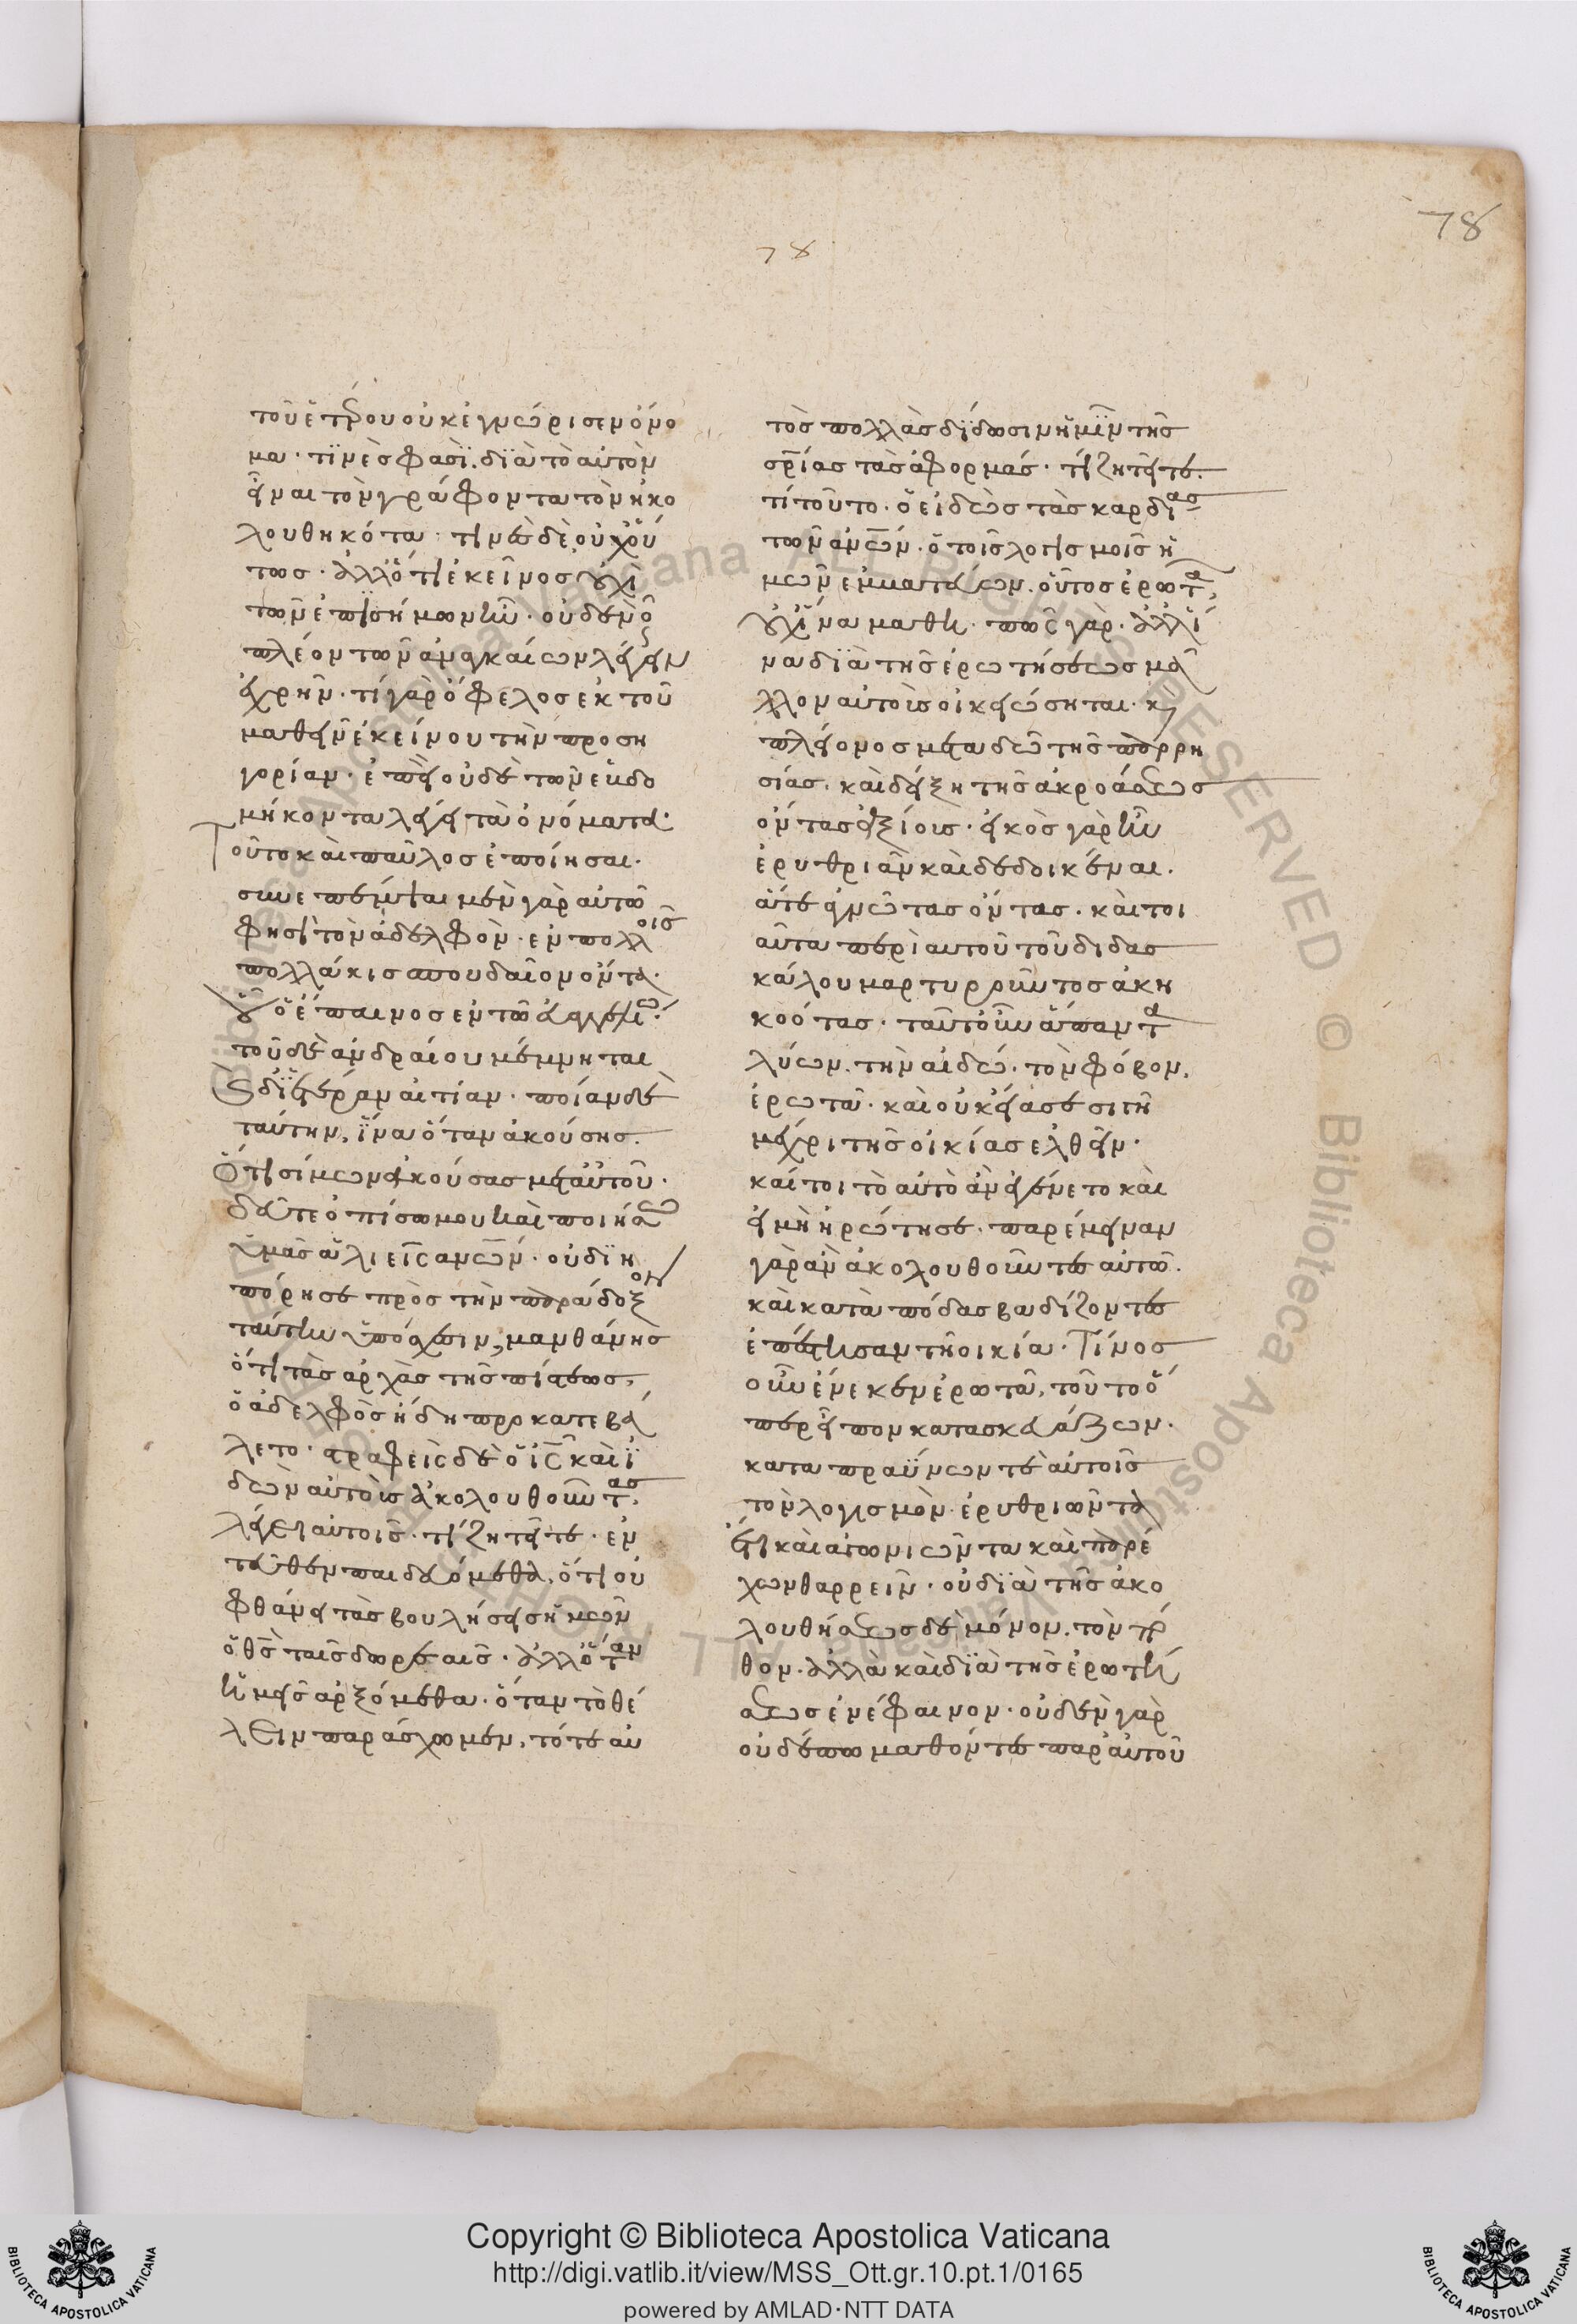 78
78
τοῦ ἑτέρου οὐκ ἐγνώρισεν ὄνο
μα· τινὲς φασὶ. διὰ τὸ αὐτὸν
εἶναι τὸν γράφοντα τὸν ἠκο
λουθηκότα· τινὲς δὲ οὐχ οὕ
τως· ἀλλ' ὅτι ἐκεῖνος οὐχὶ
τῶν ἐπισήμων ἦν· οὐδὲν οὖ
πλέον τῶν ἀναγκαίων λέγειν
ἐχρῆν· τί γὰρ ὄφελος ἐκ τοῦ
μαθεῖν ἐκείνου τὴν προση
γορίαν· ἐπεὶ οὐδὲ τῶν εὐδο
μήκοντα λέγει τὰ ὀνόματα·
Τοῦτο καὶ παῦλος ἐποίησαι·
συνεπέμψαι μὲν γὰρ αὐτῶ
φησὶ τὸν ἀδελφὸν· ἐν πολλοῖς
πολλάκις σπουδαῖον ὄντα·
οὗ ὁ ἔπαινος ἐν τῶ εὐαγγελίω·
τοῦ δὲ ἀνδραίου μέμνηται
δι' ἑτέραν αἰτίαν· ποίαν δὲ
ταύτην, ἵνα ὅταν ἀκούσης.
Ὅτι σίμων ἀκούσας μετ' αὐτοῦ·
δεῦτε ὀπίσω μου καὶ ποιήσω
ὑμᾶς ἁλιεῖς ανων· οὐ διη
πόρησε πρὸς τὴν παράδοξον
ταύτην ὑπόσχεσιν, μανθάνης
ὅτι τὰς ἀρχὰς τῆς πίστεως,
ὁ ἀδελφὸς ἤδη προκατεβά
λετο· στραφεὶς δὲ ὁ ις καὶ ἰ
δὼν αὐτοὺς ἀκολουθοῦντας,
λέγει αὐτοῖς· τί ζητεῖτε· ἐν
τεῦθεν παιδευόμεθα, ὅτι οὐ
φθάνει τὰς βουλήσεις ἡμῶν
ὁ θς ταῖς δωρεαῖς· ἀλλ' ὅταν
ἡμεῖς ἀρξόμεθα· ὅταν τὸ θέ
λειν παράσχωμεν, τότε αὐ
τὸς πολλὰς δίδωσιν ἡμῖν τῆς
σρίας τὰς ἀφορμάς· τί ζητεῖτε.
τί τοῦτο· ὁ εἰδὼς τὰς καρδίας
τῶν ανων· ὁ τοῖς λογισμοῖς ἡ
μῶν ἐμβατεύων. οὗτος ἐρωτᾶ,
οὐχ ἵνα μάθη· πῶς γὰρ· ἀλλ' ἵ
να διὰ τῆς ἐρωτήσεως μᾶ
λλον αὐτοὺς οἰκειώσηται· καὶ
πλείονος μεταδῶ τῆς παρρη
σίας· καὶ δείξη τῆς ἀκροάσεως
ὄντας ἀξίους· εἰκὸς γὰρ ἦν
ἐρυθριᾶν καὶ δεδοικέναι.
ἅτε ἀγνῶτας ὄντας· καὶ τοι
αῦτα περὶ αὐτοῦ τοῦ διδας
κάλου μαρτυροῦντος ἀκη
κοότας· ταῦτ' οὖν ἅπαντα
λύων. τὴν αἰδῶ· τὸν φόβον,
ἐρωτᾶ· καὶ οὐκ εἴασε σιγῆ
μέχρι τῆς οἰκίας ἐλθεῖν·
καίτοι τὸ αὐτὸ ἂν ἐγένετο καὶ
εἰ μὴ ἠρώτησε· παρέμειναν
γὰρ ἂν ἀκολουθοῦντες αὐτῶ.
καὶ κατὰ πόδας βαδίζοντες
ἐπέστησαν τῆ οἰκία· Τίνος
οὖν ἕνεκεν ἐρωτᾶ, τοῦτο ὅ
περ εἶπον κατασκευάζων·
καταπραΰνων τὲ αὐτοῖς
τὸν λογισμὸν· ἐρυθριῶντα
ἔτι καὶ ἀγωνιῶντα καὶ παρέ
χων θαρρεῖν· οὐ διὰ τῆς ἀκο
λουθήσεως δὲ μόνον. τὸν πό
θον· ἀλλὰ καὶ διὰ τῆς ἐρωτή
σεως ἐνέφαινον· οὐδὲν γὰρ
οὐδέπω μαθόντες παρ' αὐτοῦ
Copyright © Biblioteca Apostolica Vaticana
http://digi.vatlib.it/view/MSS_Ott.gr.10.pt.1/0165
powered by AMLAD·NTT DATA
BIBLIOTECA APOSTOLICA VATICANA
BIBLIOTECA APOSTOLICA VATICANA